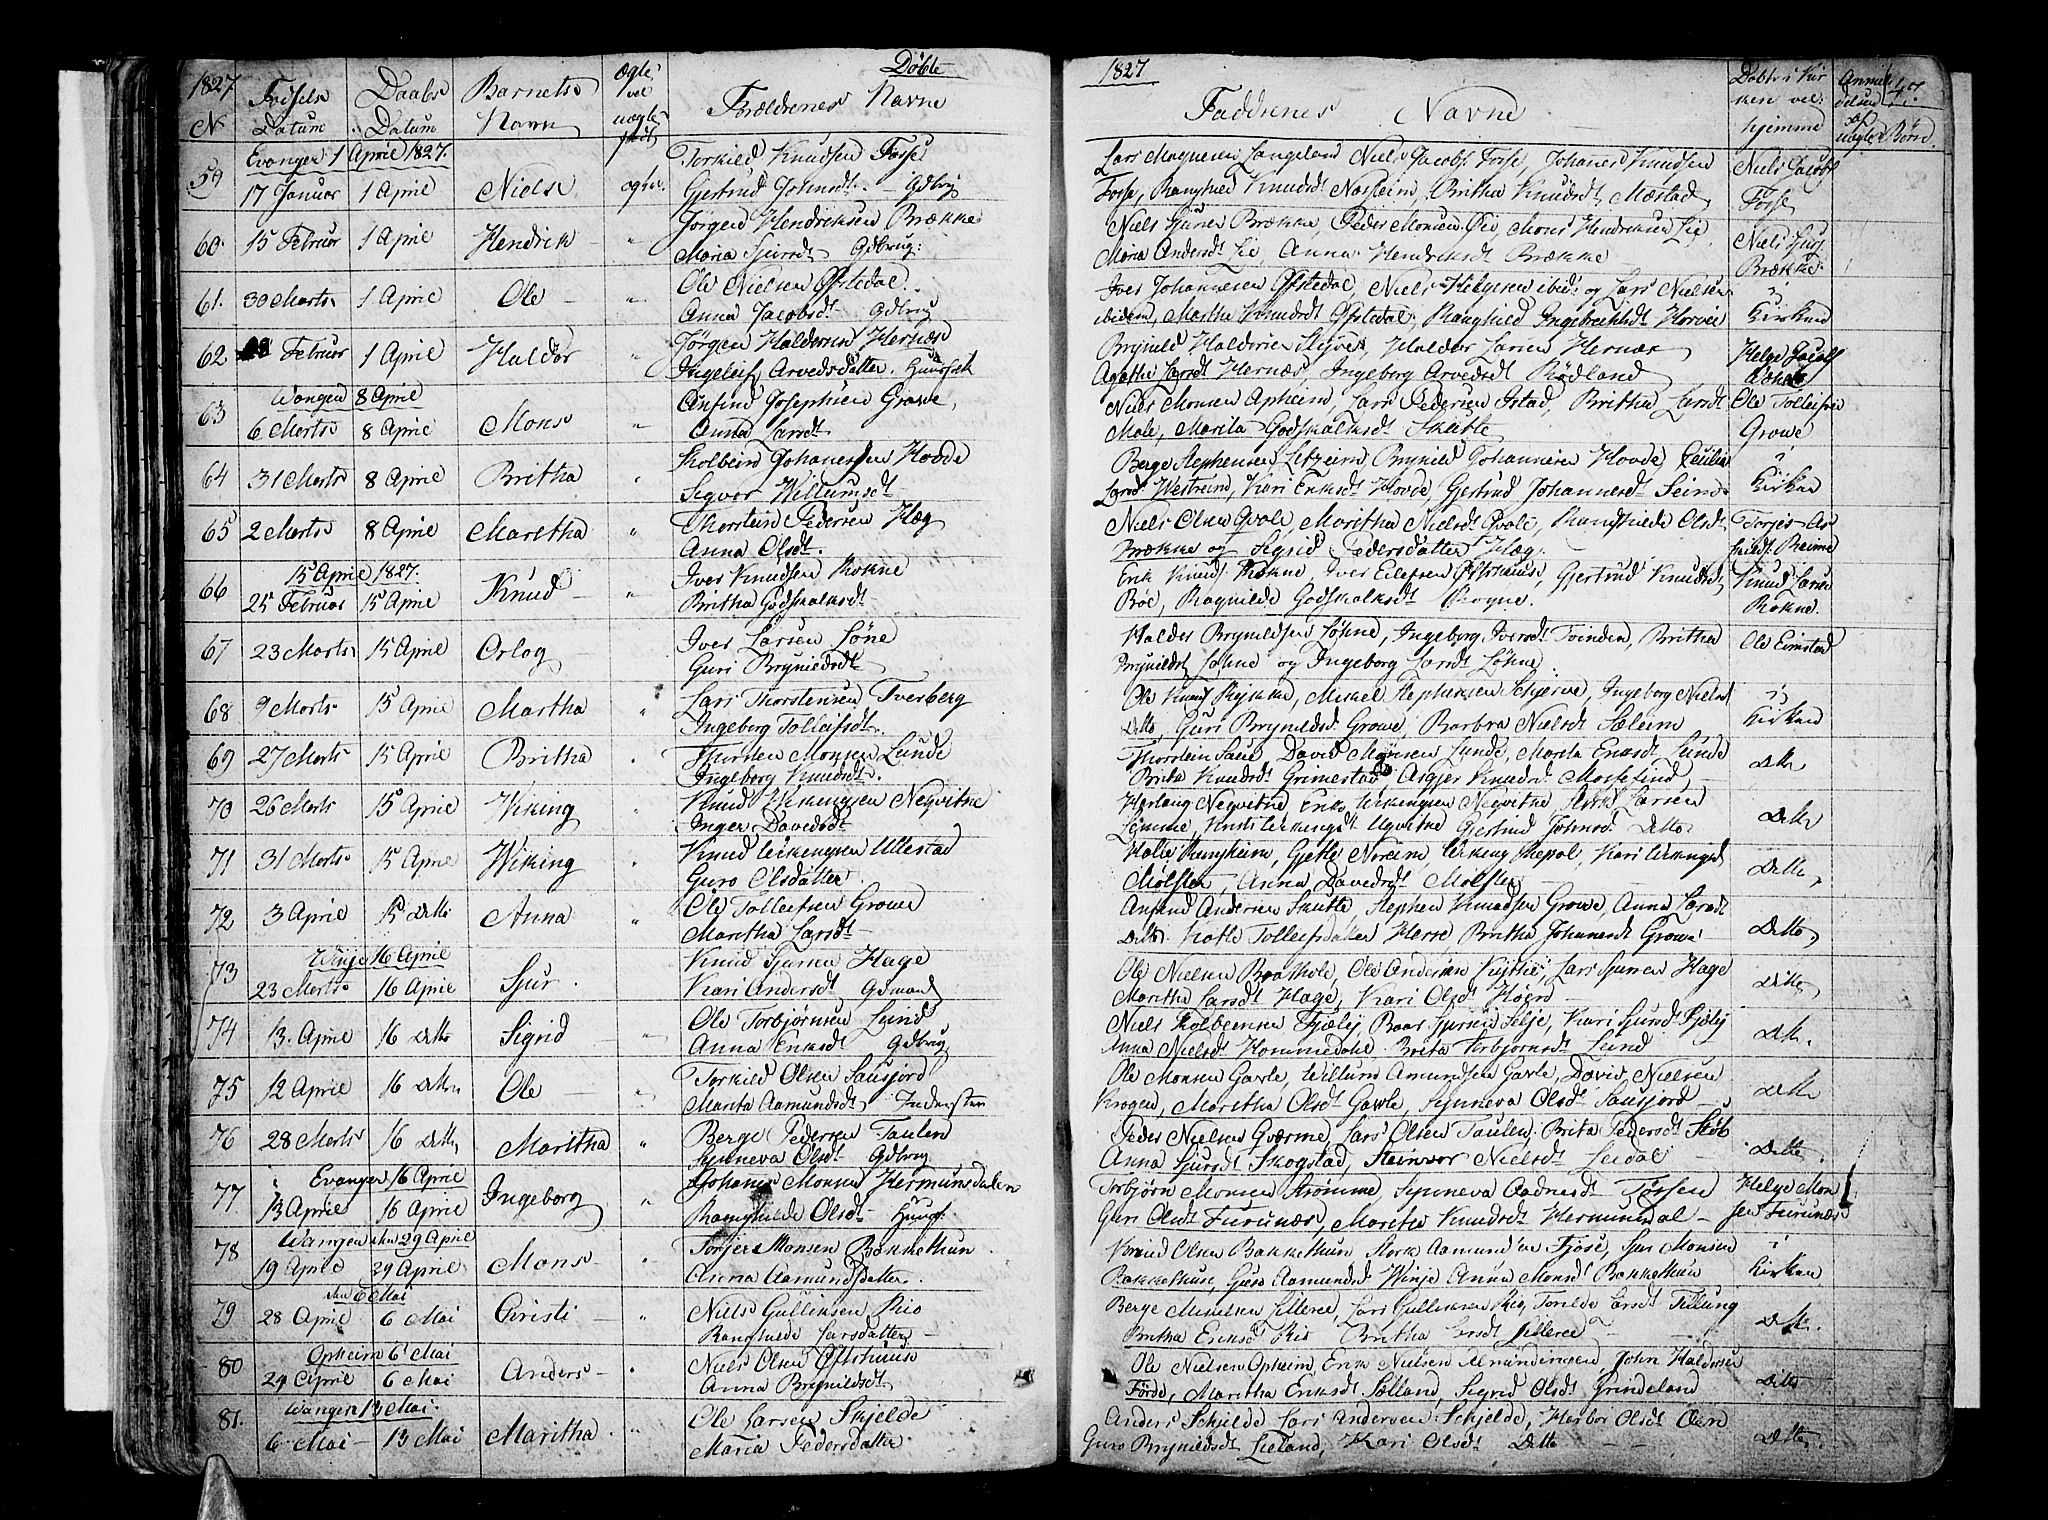 1827. Fødsels Daabs Barnets Ægte Døbte
N Datum Datum Navn vel uægte født Forældrenes Navne
Evanger 1 April 1827.
59 17 Januar 1 April Niels ægte. Torkild Knudsen Fosse
Gjertrud Johnsdt. Gdbrug
60. 15 Februar 1 April Hendrik " Jørgen Hendriksen Brække
Maria Sjursdt Gdbrug.
61. 30 Marts 1 April Ole " Ole Nielsen Øfstedal.
Anna Jacobsdt Gdbrug
62. Februar 1 April Haldor " Jørgen Haldersen Hernæs
Ingeleif Arvedsdatter. Huusfolk
Wangen 8 April
63 6 Marts 8 April Mons " Anfind Josephsen Grove,
Anna Larsdt
64 31 Marts 8 April Britha " Kolbein Johanessen Hovde
Sigvor Willumsdt
65 2 Marts 8 April Maretha " Thorstein Pedersen Hæg
Anna Olsdt.
15 April 1827.
66 25 Februar 15 April Knud " Iver Knudsen Rokne
Britha Godskalksdt
67 23 Marts 15 April Orlog Iver Larsen Løne
Guri Brynieldsdt
68 9 Marts 15 April Martha " Lars Thorstensen Tverberg
Ingeborg Tolleifsdt.
69 27 Marts 15 April Britha " Thorsten Monsen Lunde
Ingeborg Knudsdt.
70 26 Marts 15 April Viking " Knud Vikengsen Neqvitne
Inger Davedsdt
71 31 Marts 15 April Wiking " Knud Vikengsen Ullestad
Guro Olsdatter.
72 3 April 15 Ditto Anna " Ole Tolleifsen Growe
Maritha Larsdt
Winje 16 April
73 23 Marts 16 April Sjur. Knud Sjursen Hage
Kari Andersdt Gdmand
74 13. April 16 Ditto Sigrid " Ole Torbjørnsen Lund
Anna Eriksdt Gdbrug
75 12 April 16 Ditto Ole " Torkild Olsen Sausjord
Marita Aamundsdt Inderster
76 28 Marts 16 Ditto Maritha " Berge Pedersen Taulen
Synneva Olsdt Gdbrug
Evanger 16 April
77 13 April 16 April Ingeborg " Johanes Monsen Hermunsdalen
Ranghilde Olsdt Huusf.
Wangen den 29 April
78 19 April 29 April Mons " Torjers Monsen Bakkethun
Anna Aamundsdatter.
den 6 Mai
79 28 April 6 Mai Christi " Niels Gullieksen Rio
Ranghilde Larsdatter
Opheim 6 Mai
80 29 April 6 Mai Anders " Niels Olsen Øfsthuuse
Anna Brynildsdt
Wangen 13 Mai.
81. 6 Mai 13 Mai Maritha. " Ole Larsen Skjelde
Maria Pedersdatter
1827 Faddernes Navne Døbte i Kirken vel. hjemme
47.
Lars Magnesen Langeland Niels Jacobs. Fosse, Johanes Knudsen Niels Jacobs
Fosse, Ranghild Knudsdt Norheim, Britha Knudsdt Mæstad Fosse
Niels Sjursen Brække, Peder Monsen Lie, Mons Hendriksen Lie Niels Sjurs.
Maria Andersdt Lie, Anna Hendriksdt Brække Brække.
Iver Johannesen Øfstedal, Niels Helgesen ibid: og Lars Nielsen i
ibidem, Martha Knudsdt Øfstedal, Ranghild Ingebrichtsdt Horvei Kirken
Brynild Haldorsen Haldor Larsen Hernæs Helge Jacobs
Agatha Larsdt Hernæs, Ingeborg Arvedsdt Rødland
Niels Monsen Apheim, Lars Pedersen Istad, Britha Larsdt Ole Tolleifsen
Male, Marita Godskalksdt Skutle Growe
Berge Stephensen Litzeim, Brynild Johannesen Hovde, Cecilia i
Larsd Westrem, Kari Eriksdt Hovde, Gjertrud Johannesdt Seim Kirken
Niels Olsen Qvale, Maritha Nielsdt Qvale, Ranghilde Olsdt Torjis
Brække og Sigrid Pedersdatter Hæg. Reime
Erik Knuds. Rokne, Iver Eilefsen Øfsthuus, Gjertrud Knudsdt, Knud Larsen
Bøe, Ragnilde Godskalksdt Rogne. Rokne.
Halder Brynieldsen Løhne, Ingeborg Iversdt Tvinden, Britha Ole Eimstad
Brynieldsdt Løhne og Ingeborg Larsdt Løhne.
Ole Knuds Rykke, Mikel Stephensen Schjerve, Ingeborg Nielsdt i
Ditto, Guri Brynildsdt Growe, Barbra Nielsdt Sæleim Kirken
Thorstein Saue David Monsen Lunde, Marita Eriksdt Lunde Ditto
Brita Knudsdt Grimestad Asgjer Knudsdt Mossefind
Herlaug Neqvitne Eriks Vikengsen Neqvitne, Larsen Ditto
Lemme, Kristi Vikengsdt Neqvitne Gjertrud Johnsdt Ditto
Rongheim, Gjetle Noreim, Viking Repal, Kari Vikingsd Ditto
Mølster, Anna Davedsdt Mølster
Anfind Andersen Skutle, Stephen Knudsen Growe, Anna Larsdt Ditto
Ditto. Tolleifsdatter Herre Britha Johanesdt Growe
Ole Nielsen Brathole, Ole Andersen Lars Sjursen Hage Ditto
Maritha Larsdt Hage, Kari Olsdt
Niels Kolbeinsen Fjælij, Baar Sjursen Selje, Kari Sjursdt Fjælij Ditto.
Anna Nielsdt Hommedahl Brita Torbjornsdt Lund
Ole Monsen Gavle, Willum Amundsen Gavle, David Nielsen Ditto
Krogen, Maritha Olsdt Gavle, Synneva Olsdt Sausjord
Peder Nielsen Gværme, Lars Olsen Taulen, Brita Pedersdt
Anna Sjursdt Skogstad, Steinvor Nielsdt Leidal Ditto.
Torbjørn Monsen Strømme, Synneva Aadnesdt Tøssen Helge Mon
Guri Olsdt Furunæs, Maritha Knudsdt Hermundal sen Furunæs
Knud Olsen Bakkethun Styrk Aamundsen Fjose, Sjur Monsen i
Bakkethun, Guro Aamundsd Winje Anna Monsdt Bakkethun Kirken
Berge Mikelsen Lilleree, Lars Gullieksen Rio, Torilde Larsdt Tillung Ditto.
Britha Eriksdt Rio Britha Larsdt Lilleree
Ole Nielsen Opheim, Erik Nielsen Almindingen, John Haldorsen Ditto
Førde, Maritha Eriksdt Sælland, Sigrid Olsdt Grindeland
Anders Skjelde Lars Andersen Skjelde, Herbor Olsdt Øen
Guro Brynildsdt Lieland, Kari Olsdt Ditto Ditto